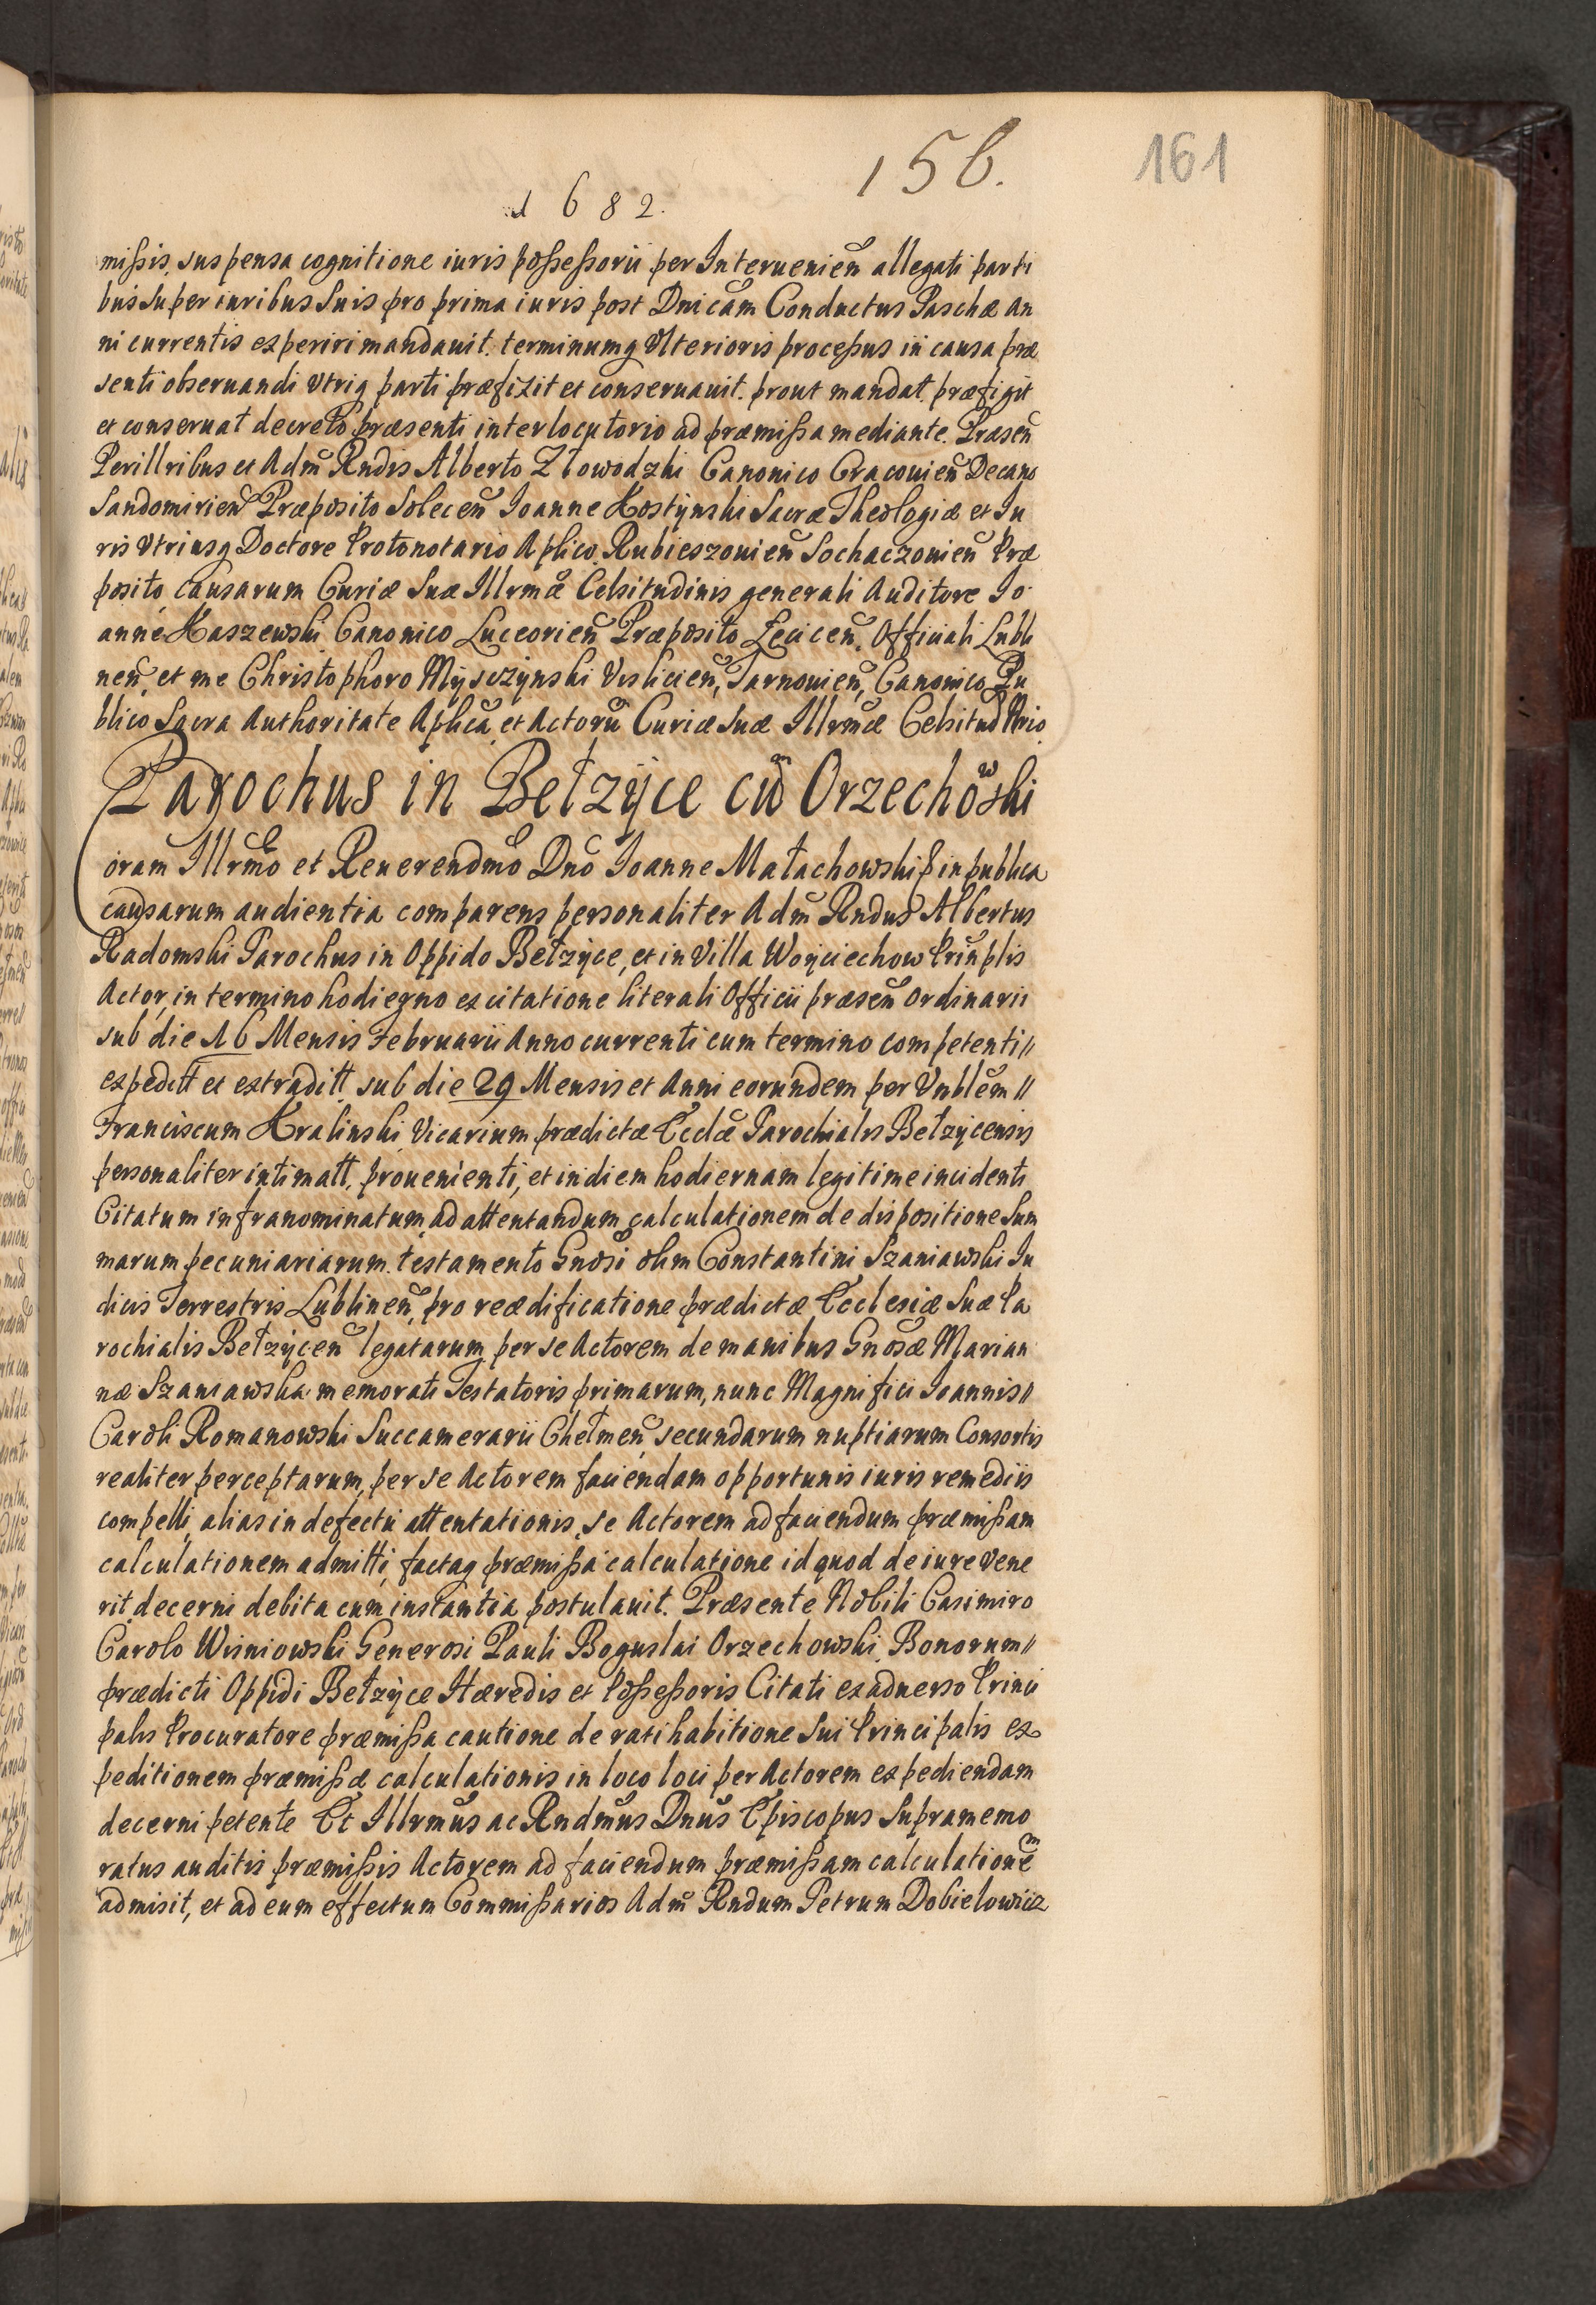 156.
161
1682.
missis, suspensa cognitione iuris possessorii per Interuenien̄ allegati parti
bus super iuribus suis pro prima iuris post Dnicam Conductus Paschæ an
ni currentis experiri mandauit. terminumq Vlterioris processus in causa præ
senti obseruandi Vtriq parti præfixit et conseruauit. prout mandat præfigit
et conseruat decreto præsenti interlocutorio ad præmissa mediante. Præsen̄
Perillribus et Adm̄ Rndis Alberto Złowodzki Canonico Cracouien̄ Decano
Sandomirien̄ Præposito Solecen̄ Ioanne Kostynski Sacræ Theologiæ et Iu
ris Vtriusq Doctore Protonotario Aplico Rubieszouien̄ Sochaczouien̄ Præ
posito causarum Curiæ Suæ Illrmæ Celsitudinis generali Auditore Io
anne Kaszewski Canonico Luceorien̄ Præposito Łecicen̄, Officiali Lubli
nen̄, et me Christophoro Myszczynski Vislicien̄, Tarnouien̄, Canonico Pu
blico Sacra Authoritate Aplica, et Actorū Curiæ Suæ Illrmæ Celsitud Nrio
Parochus in Bełzÿce cūm Orzechowski
Coram Illrmo et Reuerendmo Dno Ioanne Małachowski & in publica
causarum audientia comparens personaliter Adm̄ Rndus Albertus
Radomski Parochus in Oppido Bełzÿce, et in Villa Woÿciechow Prinplis
Actor, in termino hodierno ex citatione literali Officii præsen̄ Ordinarii
sub die 16 Mensis Februarii Anno currenti cum termino competenti //
expeditt et extraditt. sub die 29 Mensis et Anni eorundem per Vnblem //
Franciscum Kralinski Vicarium prædictæ Ecclæ Parochialis Bełzÿcensis
personaliter intimatt, prouenienti, et in diem hodiernam legitime incidenti
Citatum infranominatum, ad attentandum calculationem de dispositione Sum
marum pecuniariarum testamento Gnosi olim Constantini Szaniawski Iu
dicis Terrestris Lublinen̄, pro reædificatione prædictæ Ecclesiæ Suæ Pa
rochialis Bełzÿcen̄ legatarum, per se Actorem de manibus Gnosæ Marian
næ Szaniawska memorati Testatoris primarum, nunc Magnifici Ioannis //
Caroli Romanowski Succamerarii Chełmen̄ secundarum nuptiarum Consortis
realiter perceptarum, per se Actorem faciendam opportunis iuris remediis
compelli, alias in defectu attentationis, se Actorem ad faciendum præmissam
calculationem admitti, factaq præmissa calculatione id quod de iure vene
rit, decerni debita cum instantia postulauit. Præsente Nobili Casimiro
Carolo Wisniowski Generosi Pauli Boguslai Orzechowski, Bonorum //
prædicti Oppidi Bełzÿce Hæredis et Possessoris Citati ex aduerso Princi
palis Procuratore præmissa cautione de ratihabitione sui Principalis ex
peditionem præmissæ calculationis in loco loci per Actorem expediendam
decerni petente Et Illrmus ac Rndmus Dnus Episcopus Supramemo
ratus auditis præmissis Actorem ad faciendum præmissam calculationem
admisit, et ad eum effectum Commissarios Adm̄ Rndum Petrum Dobielowicz